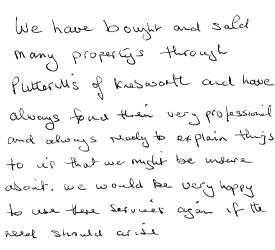 We have bought and sold
many propertys through
Putterills of Knebworth and have
always found them very professional
and always ready to explain things
to us that we might be unsure
about. We would be very happy
to use there services again if the
need should arise